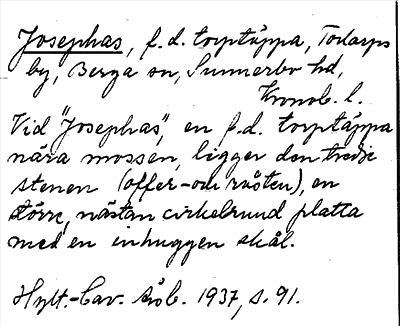 Josephas, f.d. torptäppa, Torarps
by, Berga sn, Sunnerbo hd,
Kronob. l.
Vid "Josephas", en f.d. torptäppa
nära mossen, ligger den tredje
stenen (offer-om rösten), en
större, nästan cirkelrund platta
med en inhuggen skål.
Hylt.-Cav. årsb. 1937, s. 91.